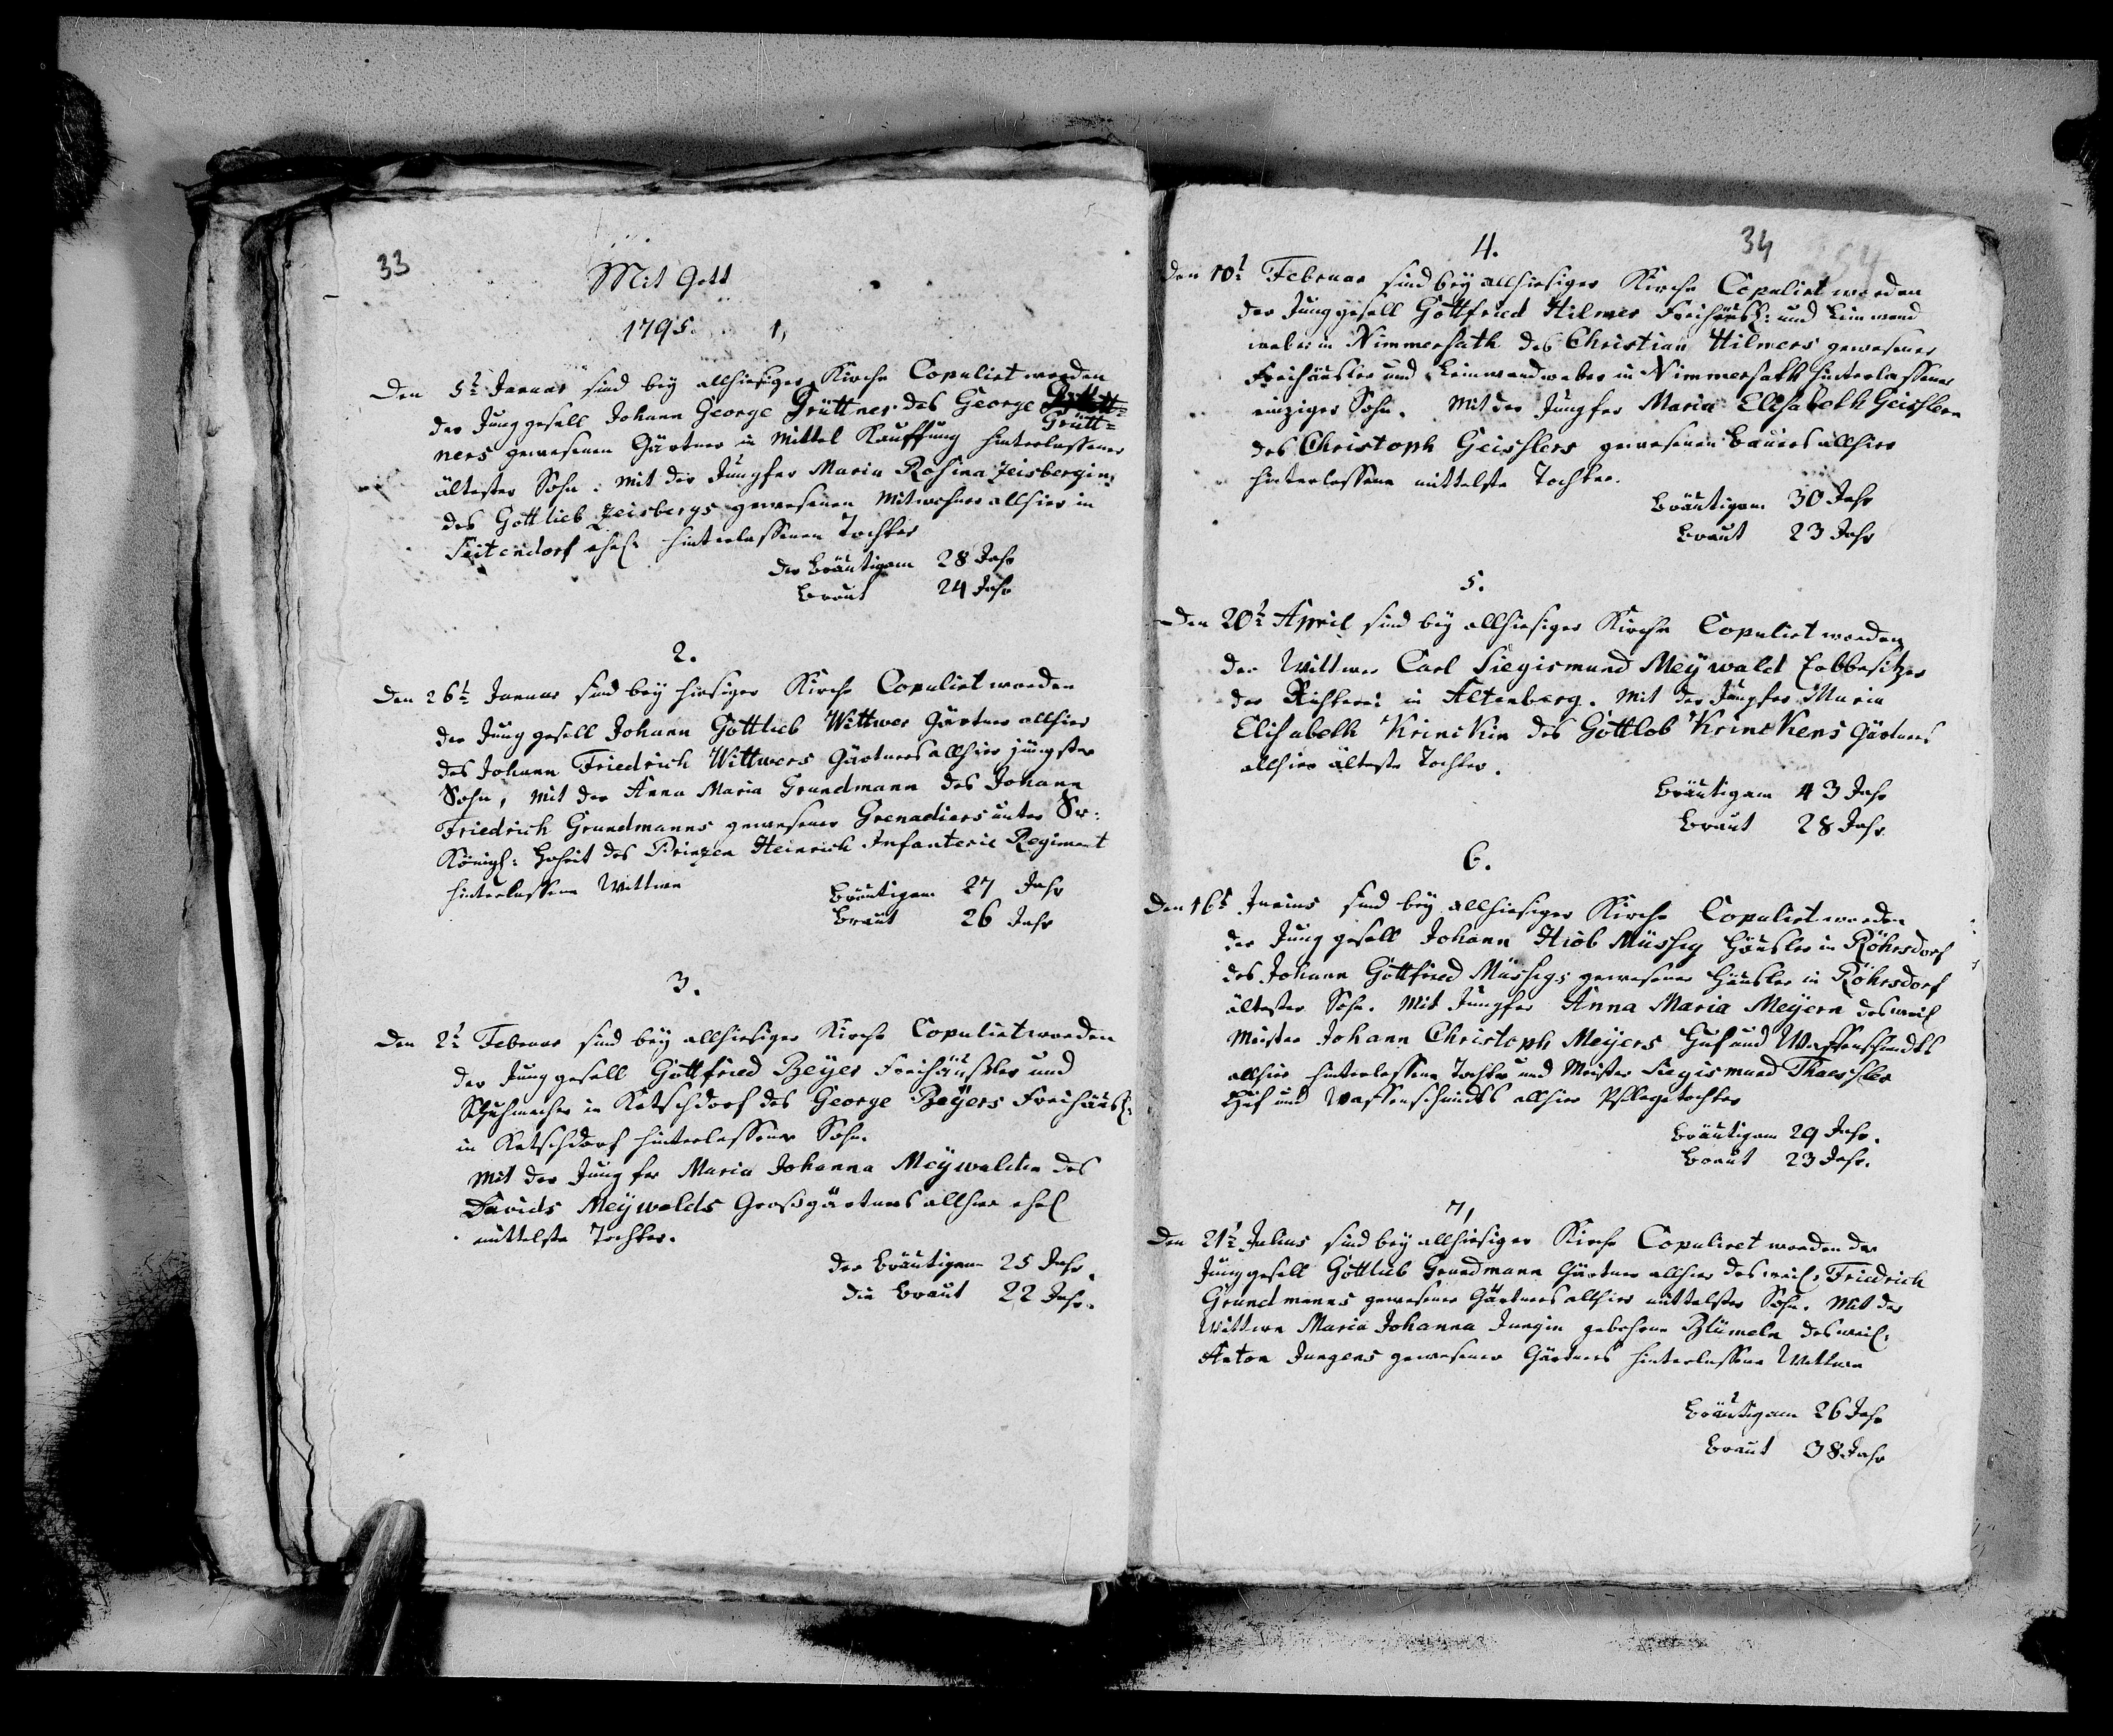 33
Mit Gott
1795. 1,
Den 5t Januar sind bey allhiesiger Kirche Copuliet worden
der Junggesell Johann George Grüttner des George
Grütt=
ners gewesenen Gärtner in Mittel Kauffung hinterlassener
ältester Sohn. Mit der Jungfer Maria Rosina Zeisbergin
des Gottlieb Zeisbergs gewesenen Mitwohner allhier in
Seitendorf ehel. hinterlassenen Tochter
der Bräutigam 28 Jahr
Braut 24 Jahr
2.
Den 26t Januar sind bey hiesiger Kirche Copuliet worden
der Junggesell Johann Gottlieb Wittwer Gärtner allhier
des Johann Friedrich Wittwers Gärtners allhier jüngster
Sohn, mit der Anna Maria Grundmann des Johann
Friedrich Grundmanns gewesener Grenadiers unter Sr:
Königl: Hoheit des Prinzen Heinrich Infanterie Regiment
hinterlassene Wittwe
Bräutigam 27 Jahr
Braut 26 Jahr
3.
Den 2t Februar sind bey allhiesiger Kirche Copuliet worden
der Junggesell Gottfried Beyer Freihäußler und
Schuhmacher in Ketschdorf des George Beyers Freihäusl:
in Ketschdorf hinterlassener Sohn.
Mit der Jungfer Maria Johanna Meywaldin des
Davids Meywalds Großgärtners allhier ehel
mittelste Tochter.
der Bräutigam 25 Jahr
die Braut 22 Jahr.
34
4.
Den 10t Februar sind bey allhiesiger Kirche Copuliet worden
der Junggesell Gottfried Hilmer Freihäusl: und Leinwand
weber in Nimmersath des Christian Hilmers gewesener
Freihäusler und Leinwandweber in Nimmersath hinterlassener
einziger Sohn. Mit der Jungfer Maria Elisabeth Geislern
des Christoph Geislers gewesenen Bauers allhier
hinterlassene mittelste Tochter.
Bräutigam 30 Jahr
Braut 23 Jahr
5.
Den 20t April sind bey allhiesiger Kirche Copuliet worden
der Wittwer Carl Siegismund Meywald Erbbesitzer
der Richterei in Altenberg. Mit der Jungfer Maria
Elisabeth Krinckin des Gottlob Krinckens Gärtners
allhier älteste Tochter.
Bräutigam 43 Jahr
Braut 28 Jahr
6.
Den 16t Junius sind bey allhiesiger Kirche Copuliet worden
der Junggesell Johann Hiob Müssig Häusler in Röhrsdorf
des Johann Gottfried Müssigs gewesener Häusler in Röhrsdorf
ältester Sohn. Mit Jungfer Anna Maria Meyern des weil
Meister Johann Christoph Meyers Huf und Waffenschmidts
allhier hinterlassene Tochter und Meister Siegismund Thaeschler
Huf und Waffenschmidts allhier Pflegetochter
Bräutigam 29 Jahr.
Braut 23 Jahr.
7,
Den 21t Julius sind bey allhiesiger Kirche Copuliret worden der
Junggesell Gottlieb Grundmann Gärtner allhier des weil: Friedrich
Grundmanns gewesener Gärtners allhier mittelster Sohn. Mit der
Wittwe Maria Johanna Jungin gebohrne Blümeln des weil:
Anton Jungens gewesener Gärtners hinterlassene Wittwe
Bräutigam 26 Jahr
Braut 38 Jahr